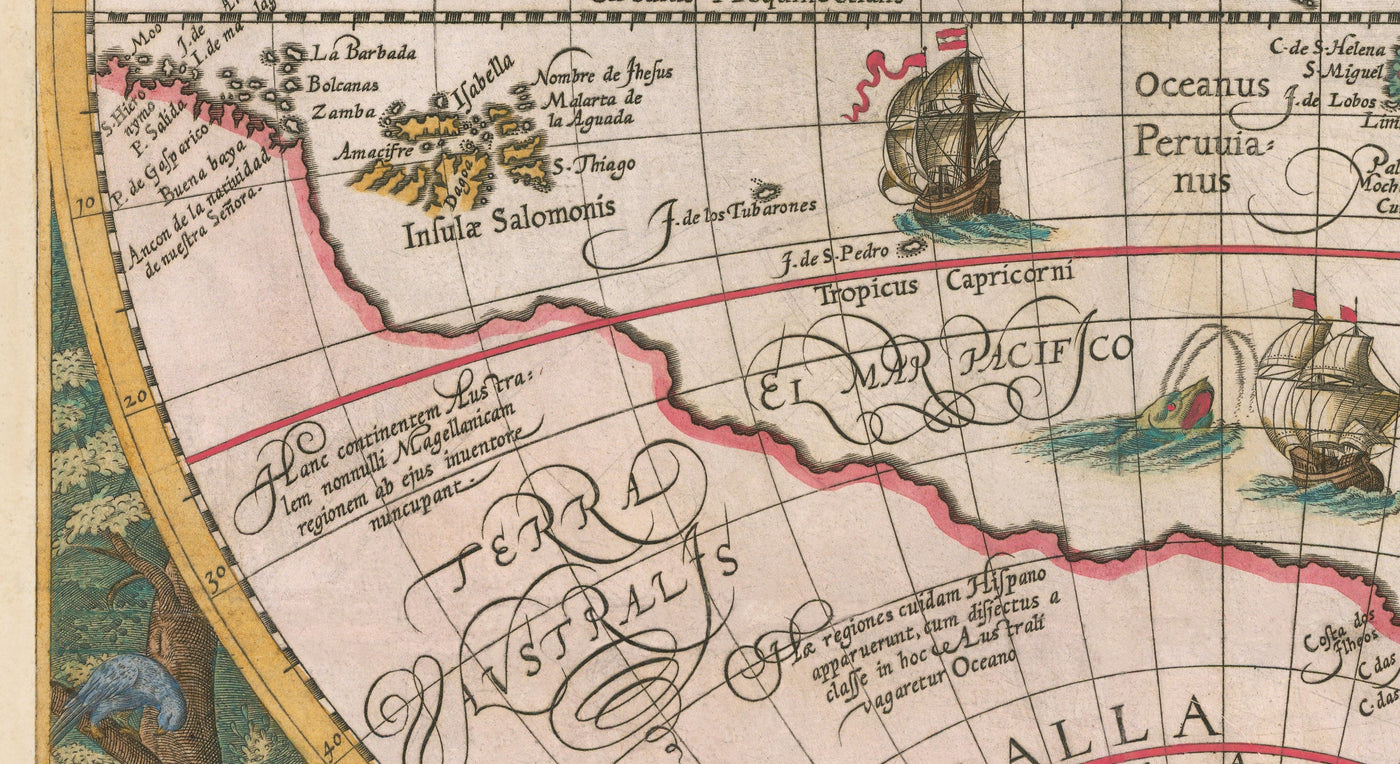 Circulus Aequinoctialis
I. de
I. de ma
La Barbada
Bolcanas
Zamba
Iſabella
Nombre de Jheſus
Malarta de
la Aguada
Amacifre
Dagoa
S. Thiago
Inſulæ Salomonis
S. Hiero
nymo
P. Salida
P. de Gaſparico
Buena baya
Ancon de la natividad
de nueſtra Señora.
J. de los Tubarones
J. de S. Pedro
Tropicus Capricorni
EL MAR PACIFICO
Oceanus
Peruuia:
nus
C. de S. Helena
S. Miguel
J. de Lobos
Lim
Pal
Moch
Cu
10
20
30
40
Hanc continentem Auſtra:
lem nonnulli Magellanicam
regionem ab ejus inventore
nuncupant.
TERRA
AVSTRALIS
Hæ regiones cuidam Hiſpano
apparuerunt, cum diſjectus a
claſſe in hoc Auſtrali
vagaretur Oceano
Coſta dos
Ilheos
C. das
C. das
ALLA